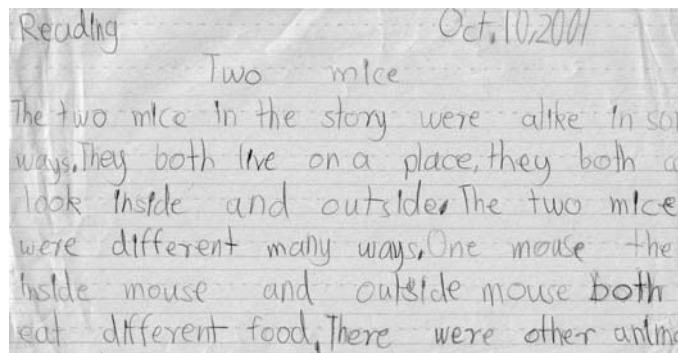 Reading Oct. 10, 2001
Two mice
The two mice in the story were alike in
ways. They both live on a place, they both
look inside and outside. The two mice
were different many ways. One mouse the
inside mouse and outside mouse both
eat different food. There were other